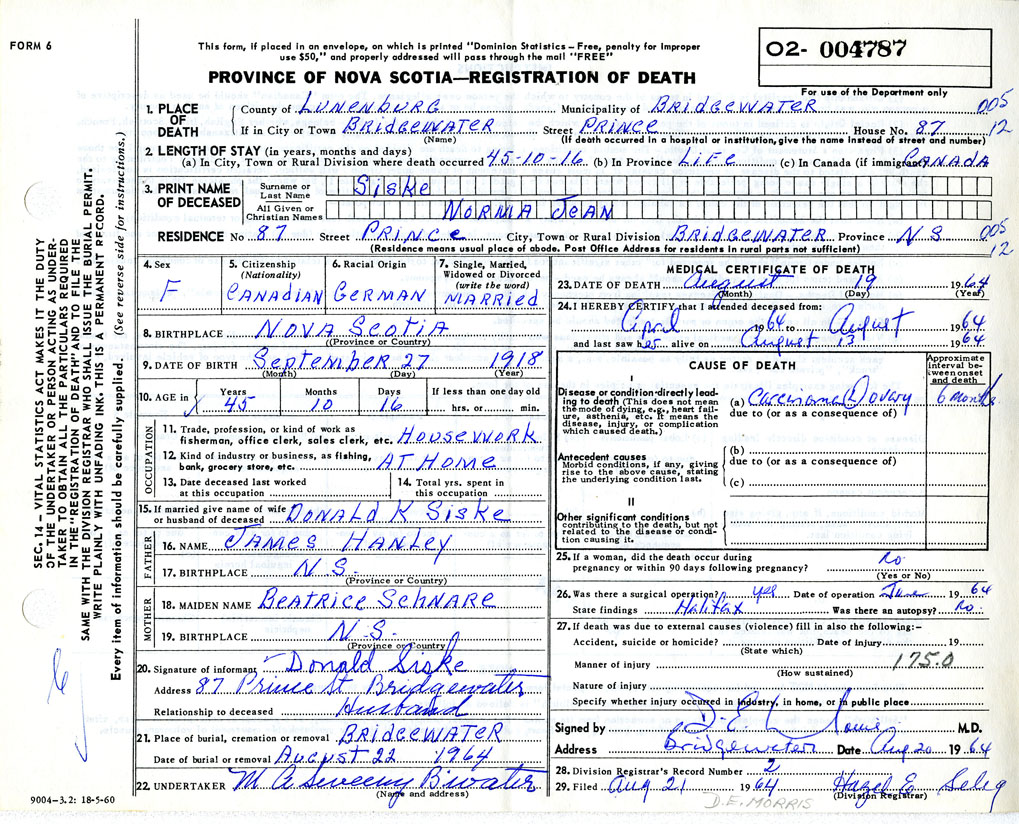 FORM 6
This form, if placed in an envelope, on which is printed "Dominion Statistics – Free, penalty for improper
use $50," and properly addressed will pass through the mail "FREE"
PROVINCE OF NOVA SCOTIA—REGISTRATION OF DEATH
02- 004787
For use of the Department only
SEC. 14 – VITAL STATISTICS ACT MAKES IT THE DUTY
OF THE UNDERTAKER OR PERSON ACTING AS UNDER-
TAKER TO OBTAIN ALL THE PARTICULARS REQUIRED
IN THE "REGISTRATION OF DEATH" AND TO FILE THE
SAME WITH THE DIVISION REGISTRAR WHO SHALL ISSUE THE BURIAL PERMIT.
WRITE PLAINLY WITH UNFADING INK. THIS IS A PERMANENT RECORD.
Every item of information should be carefully supplied. (See reverse side for instructions.)
1. PLACE OF DEATH
County of LUNENBURG Municipality of BRIDGEWATER 005
If in City or Town BRIDGEWATER Street PRINCE House No. 87 12
(Name) (If death occurred in a hospital or institution, give the name instead of street and number)
2. LENGTH OF STAY (in years, months and days)
(a) In City, Town or Rural Division where death occurred 45-10-16 (b) In Province LIFE (c) In Canada (if immigrant) CANADA
3. PRINT NAME OF DECEASED
Surname or Last Name Siske
All Given or Christian Names NORMA JEAN
RESIDENCE No 87 Street PRINCE City, Town or Rural Division BRIDGEWATER Province N S 005
(Residence means usual place of abode. Post Office Address for residents in rural parts not sufficient) 12
4. Sex F
5. Citizenship (Nationality) CANADIAN
6. Racial Origin GERMAN
7. Single, Married, Widowed or Divorced (write the word) MARRIED
8. BIRTHPLACE NOVA SCOTIA
(Province or Country)
9. DATE OF BIRTH September 27 1918
(Month) (Day) (Year)
10. AGE in Years 45 Months 10 Days 16 If less than one day old hrs. or min.
OCCUPATION
11. Trade, profession, or kind of work as
fisherman, office clerk, sales clerk, etc. HOUSEWORK
12. Kind of industry or business, as fishing,
bank, grocery store, etc. AT HOME
13. Date deceased last worked at this occupation
14. Total yrs. spent in this occupation
15. If married give name of wife
or husband of deceased DONALD K SISKE
FATHER
16. NAME JAMES HANLEY
17. BIRTHPLACE N.S.
(Province or Country)
MOTHER
18. MAIDEN NAME BEATRICE SCHNARE
19. BIRTHPLACE N.S.
(Province or Country)
20. Signature of informant Donald Siske
Address 87 Prince St Bridgewater
Relationship to deceased Husband
21. Place of burial, cremation or removal BRIDGEWATER
Date of burial or removal AUGUST 22 1964
22. UNDERTAKER M A Sweeny B'water
(Name and address)
9004-3.2: 18-5-60
MEDICAL CERTIFICATE OF DEATH
23. DATE OF DEATH August 19 1964
(Month) (Day) (Year)
24. I HEREBY CERTIFY that I attended deceased from:
April 1964 to August 1964
and last saw her alive on August 13 1964
CAUSE OF DEATH
Approximate interval between onset and death
I
Disease or condition directly lead-
ing to death (This does not mean
the mode of dying, e.g., heart fail-
ure, asthenia, etc. It means the
disease, injury, or complication
which caused death.)
(a) Carcinoma Ovary 6 months
due to (or as a consequence of)
Antecedent causes
Morbid conditions, if any, giving
rise to the above cause, stating
the underlying condition last.
(b)
due to (or as a consequence of)
(c)
II
Other significant conditions
contributing to the death, but not
related to the disease or condi-
tion causing it.
25. If a woman, did the death occur during
pregnancy or within 90 days following pregnancy? no
(Yes or No)
26. Was there a surgical operation? yes Date of operation 1964
State findings Halifax Was there an autopsy? no.
27. If death was due to external causes (violence) fill in also the following:-
Accident, suicide or homicide? Date of injury 19
(State which)
Manner of injury 175.0
(How sustained)
Nature of injury
Specify whether injury occurred in industry, in home, or in public place
Signed by D. E. M.D.
Address Bridgewater Date Aug 20 1964
28. Division Registrar's Record Number 2
29. Filed Aug 21 1964 Hazel E Selig
(Division Registrar)
D.E. MORRIS